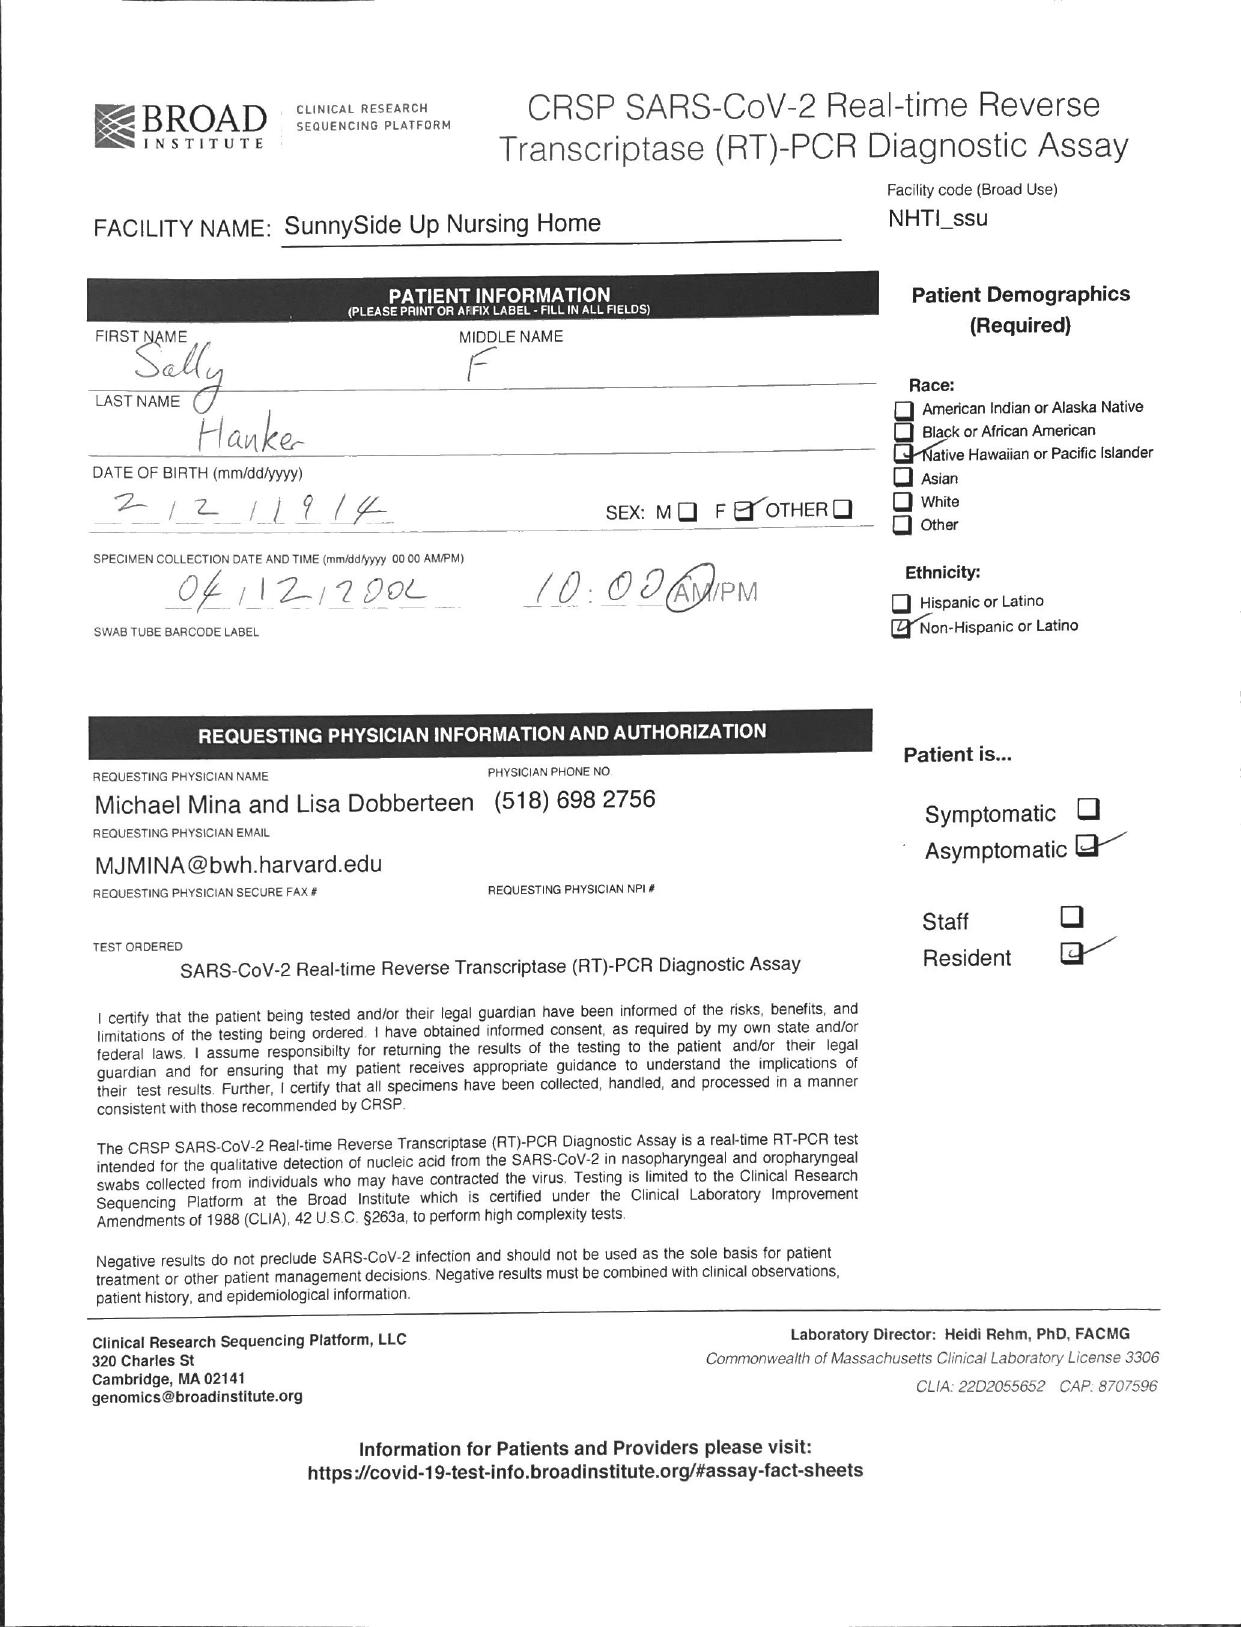 BROAD
INSTITUTE
CLINICAL RESEARCH
SEQUENCING PLATFORM
CRSP SARS-CoV-2 Real-time Reverse
Transcriptase (RT)-PCR Diagnostic Assay
Facility code (Broad Use)
NHTI_ssu
FACILITY NAME: SunnySide Up Nursing Home
PATIENT INFORMATION
(PLEASE PRINT OR AFFIX LABEL - FILL IN ALL FIELDS)
FIRST NAME MIDDLE NAME
Sally F
LAST NAME
Hanker
DATE OF BIRTH (mm/dd/yyyy)
2 / 2 / 1 9 1 4
SEX: M F OTHER
SPECIMEN COLLECTION DATE AND TIME (mm/dd/yyyy 00 00 AM/PM)
04 / 12 / 10:00 AM/PM
SWAB TUBE BARCODE LABEL
Patient Demographics
(Required)
Race:
American Indian or Alaska Native
Black or African American
Native Hawaiian or Pacific Islander
Asian
White
Other
Ethnicity:
Hispanic or Latino
Non-Hispanic or Latino
REQUESTING PHYSICIAN INFORMATION AND AUTHORIZATION
REQUESTING PHYSICIAN NAME PHYSICIAN PHONE NO.
Michael Mina and Lisa Dobberteen (518) 698 2756
REQUESTING PHYSICIAN EMAIL
MJMINA@bwh.harvard.edu
REQUESTING PHYSICIAN SECURE FAX # REQUESTING PHYSICIAN NPI #
TEST ORDERED
SARS-CoV-2 Real-time Reverse Transcriptase (RT)-PCR Diagnostic Assay
Patient is...
Symptomatic
Asymptomatic
Staff
Resident
I certify that the patient being tested and/or their legal guardian have been informed of the risks, benefits, and
limitations of the testing being ordered. I have obtained informed consent, as required by my own state and/or
federal laws. I assume responsibilty for returning the results of the testing to the patient and/or their legal
guardian and for ensuring that my patient receives appropriate guidance to understand the implications of
their test results. Further, I certify that all specimens have been collected, handled, and processed in a manner
consistent with those recommended by CRSP.
The CRSP SARS-CoV-2 Real-time Reverse Transcriptase (RT)-PCR Diagnostic Assay is a real-time RT-PCR test
intended for the qualitative detection of nucleic acid from the SARS-CoV-2 in nasopharyngeal and oropharyngeal
swabs collected from individuals who may have contracted the virus. Testing is limited to the Clinical Research
Sequencing Platform at the Broad Institute which is certified under the Clinical Laboratory Improvement
Amendments of 1988 (CLIA), 42 U.S.C. §263a, to perform high complexity tests.
Negative results do not preclude SARS-CoV-2 infection and should not be used as the sole basis for patient
treatment or other patient management decisions. Negative results must be combined with clinical observations,
patient history, and epidemiological information.
Clinical Research Sequencing Platform, LLC
320 Charles St
Cambridge, MA 02141
genomics@broadinstitute.org
Laboratory Director: Heidi Rehm, PhD, FACMG
Commonwealth of Massachusetts Clinical Laboratory License 3306
CLIA: 22D2055652 CAP: 8707596
Information for Patients and Providers please visit:
https://covid-19-test-info.broadinstitute.org/#assay-fact-sheets